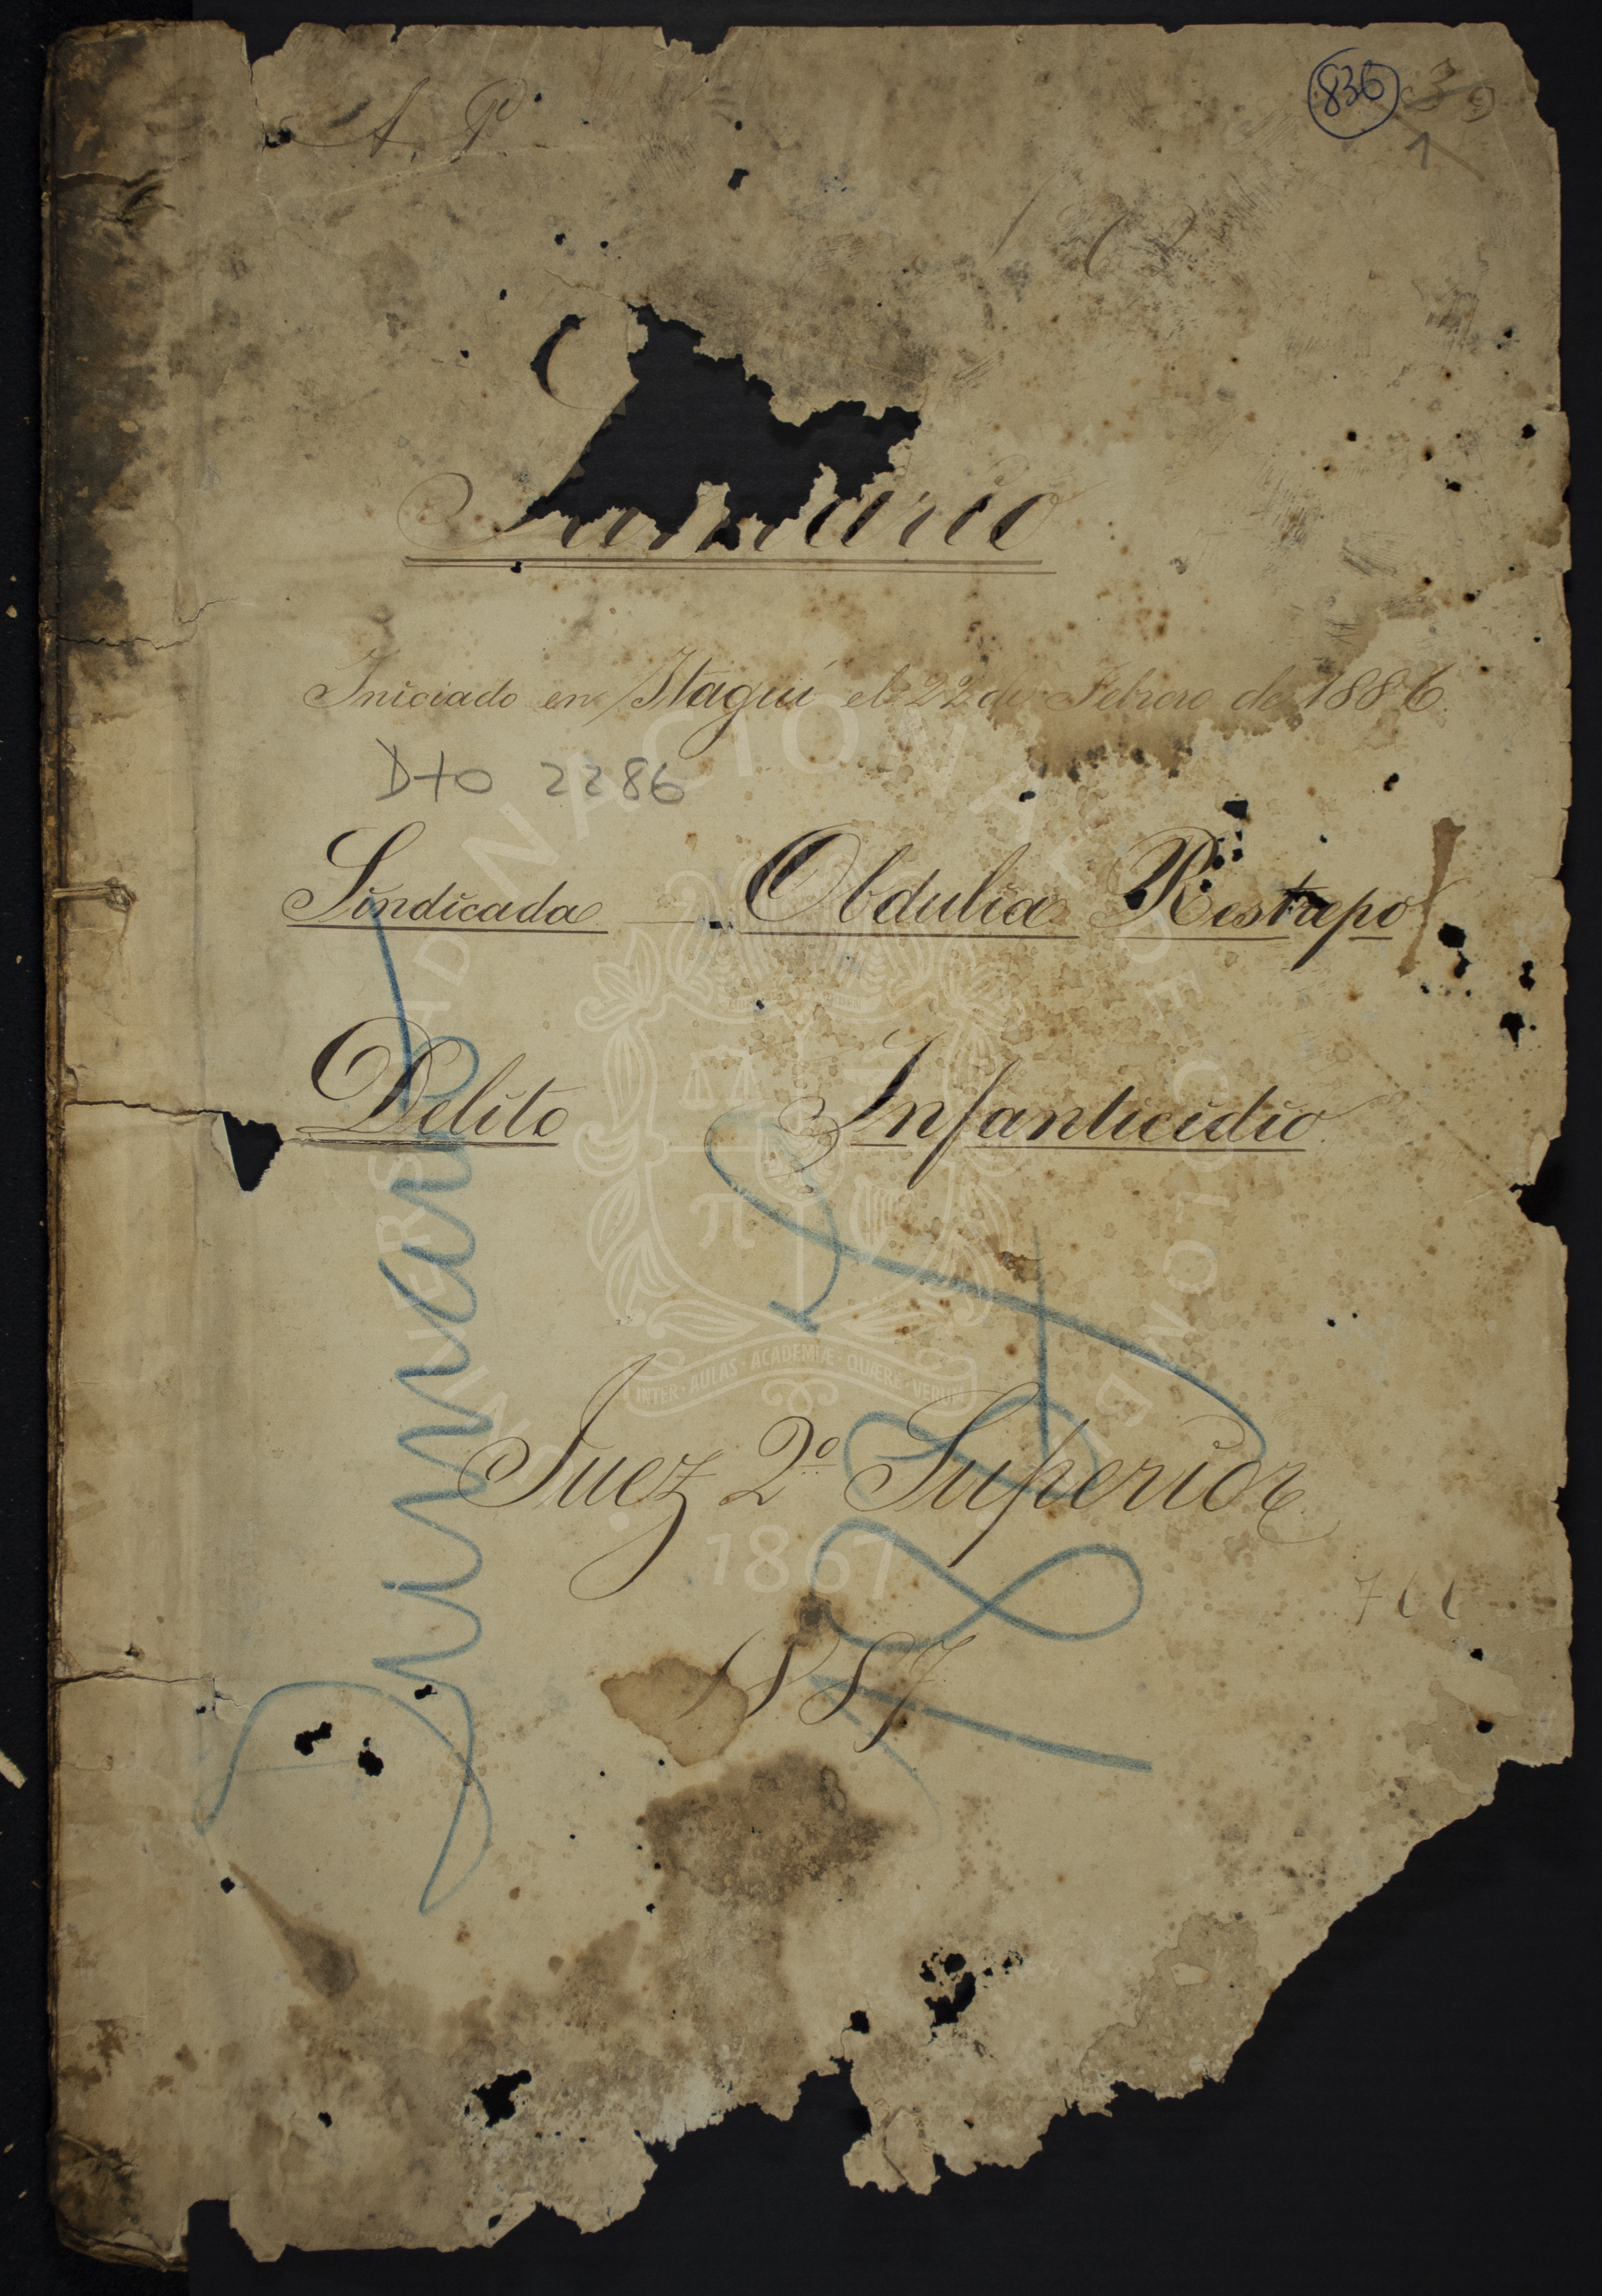 A. P.
836 39
Sumario
Iniciado en Itagüí el 22 de Febrero de 1886.
Dto 2286
Sindicada Obdulia Restrepo
Delito Infanticidio.
Juez 2º Superior
1887
Sumario
UNIVERSIDAD NACIONAL DE COLOMBIA
INTER · AULAS · ACADEMIÆ · QUÆRE · VERUM
1867